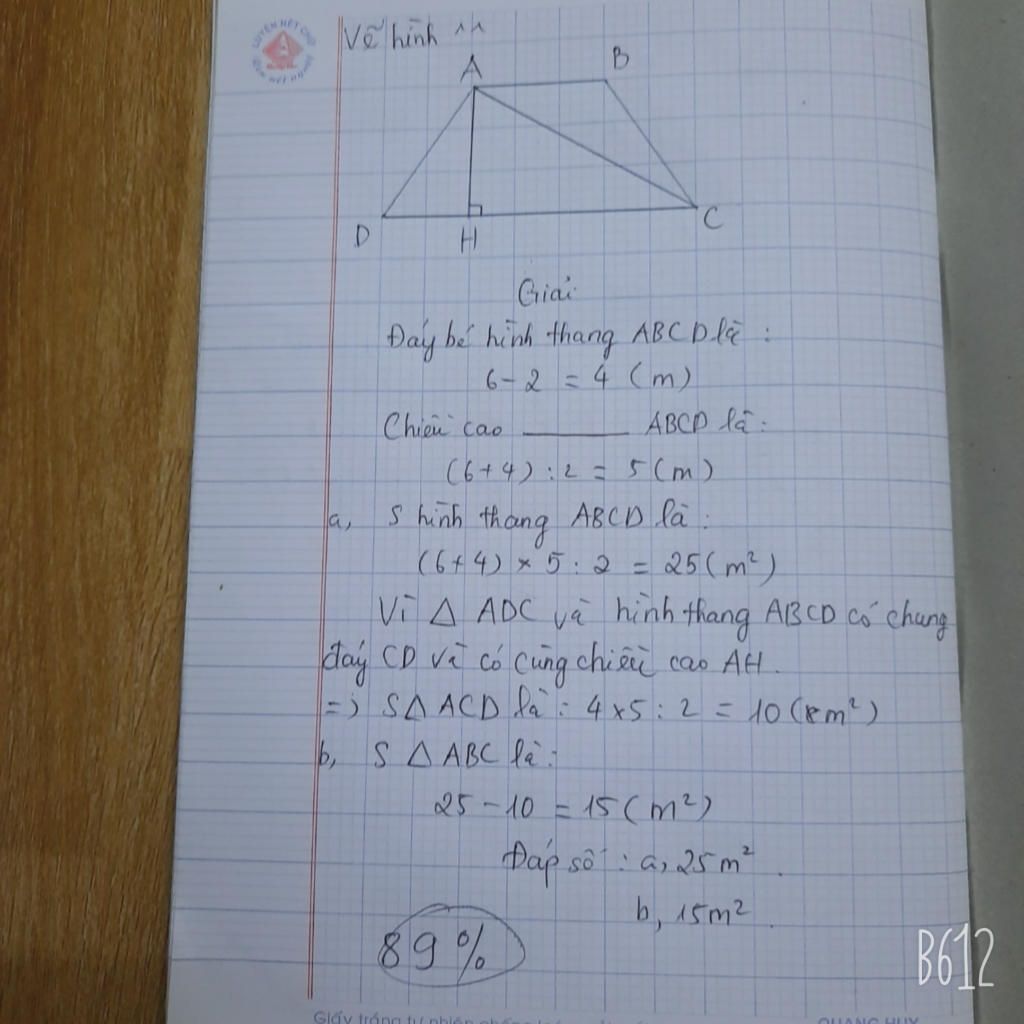 LUYỆN NÉT CHỮ
Vẽ hình ^^
A B
D H C
Giải
Đáy bé hình thang ABCD là :
6 - 2 = 4 (m)
Chiều cao ——— ABCD là :
(6+4) : 2 = 5 (m)
a, S hình thang ABCD là :
(6+4) × 5 : 2 = 25 (m²)
Vì △ ADC và hình thang ABCD có chung
đáy CD và có cùng chiều cao AH.
=) S△ ACD là : 4 x 5 : 2 = 10 (m²)
b, S △ ABC là :
25 - 10 = 15 (m²)
Đáp số : a, 25 m².
b, 15m².
89 %
B612
Giấy trắng tự nhiên
QUANG HUY